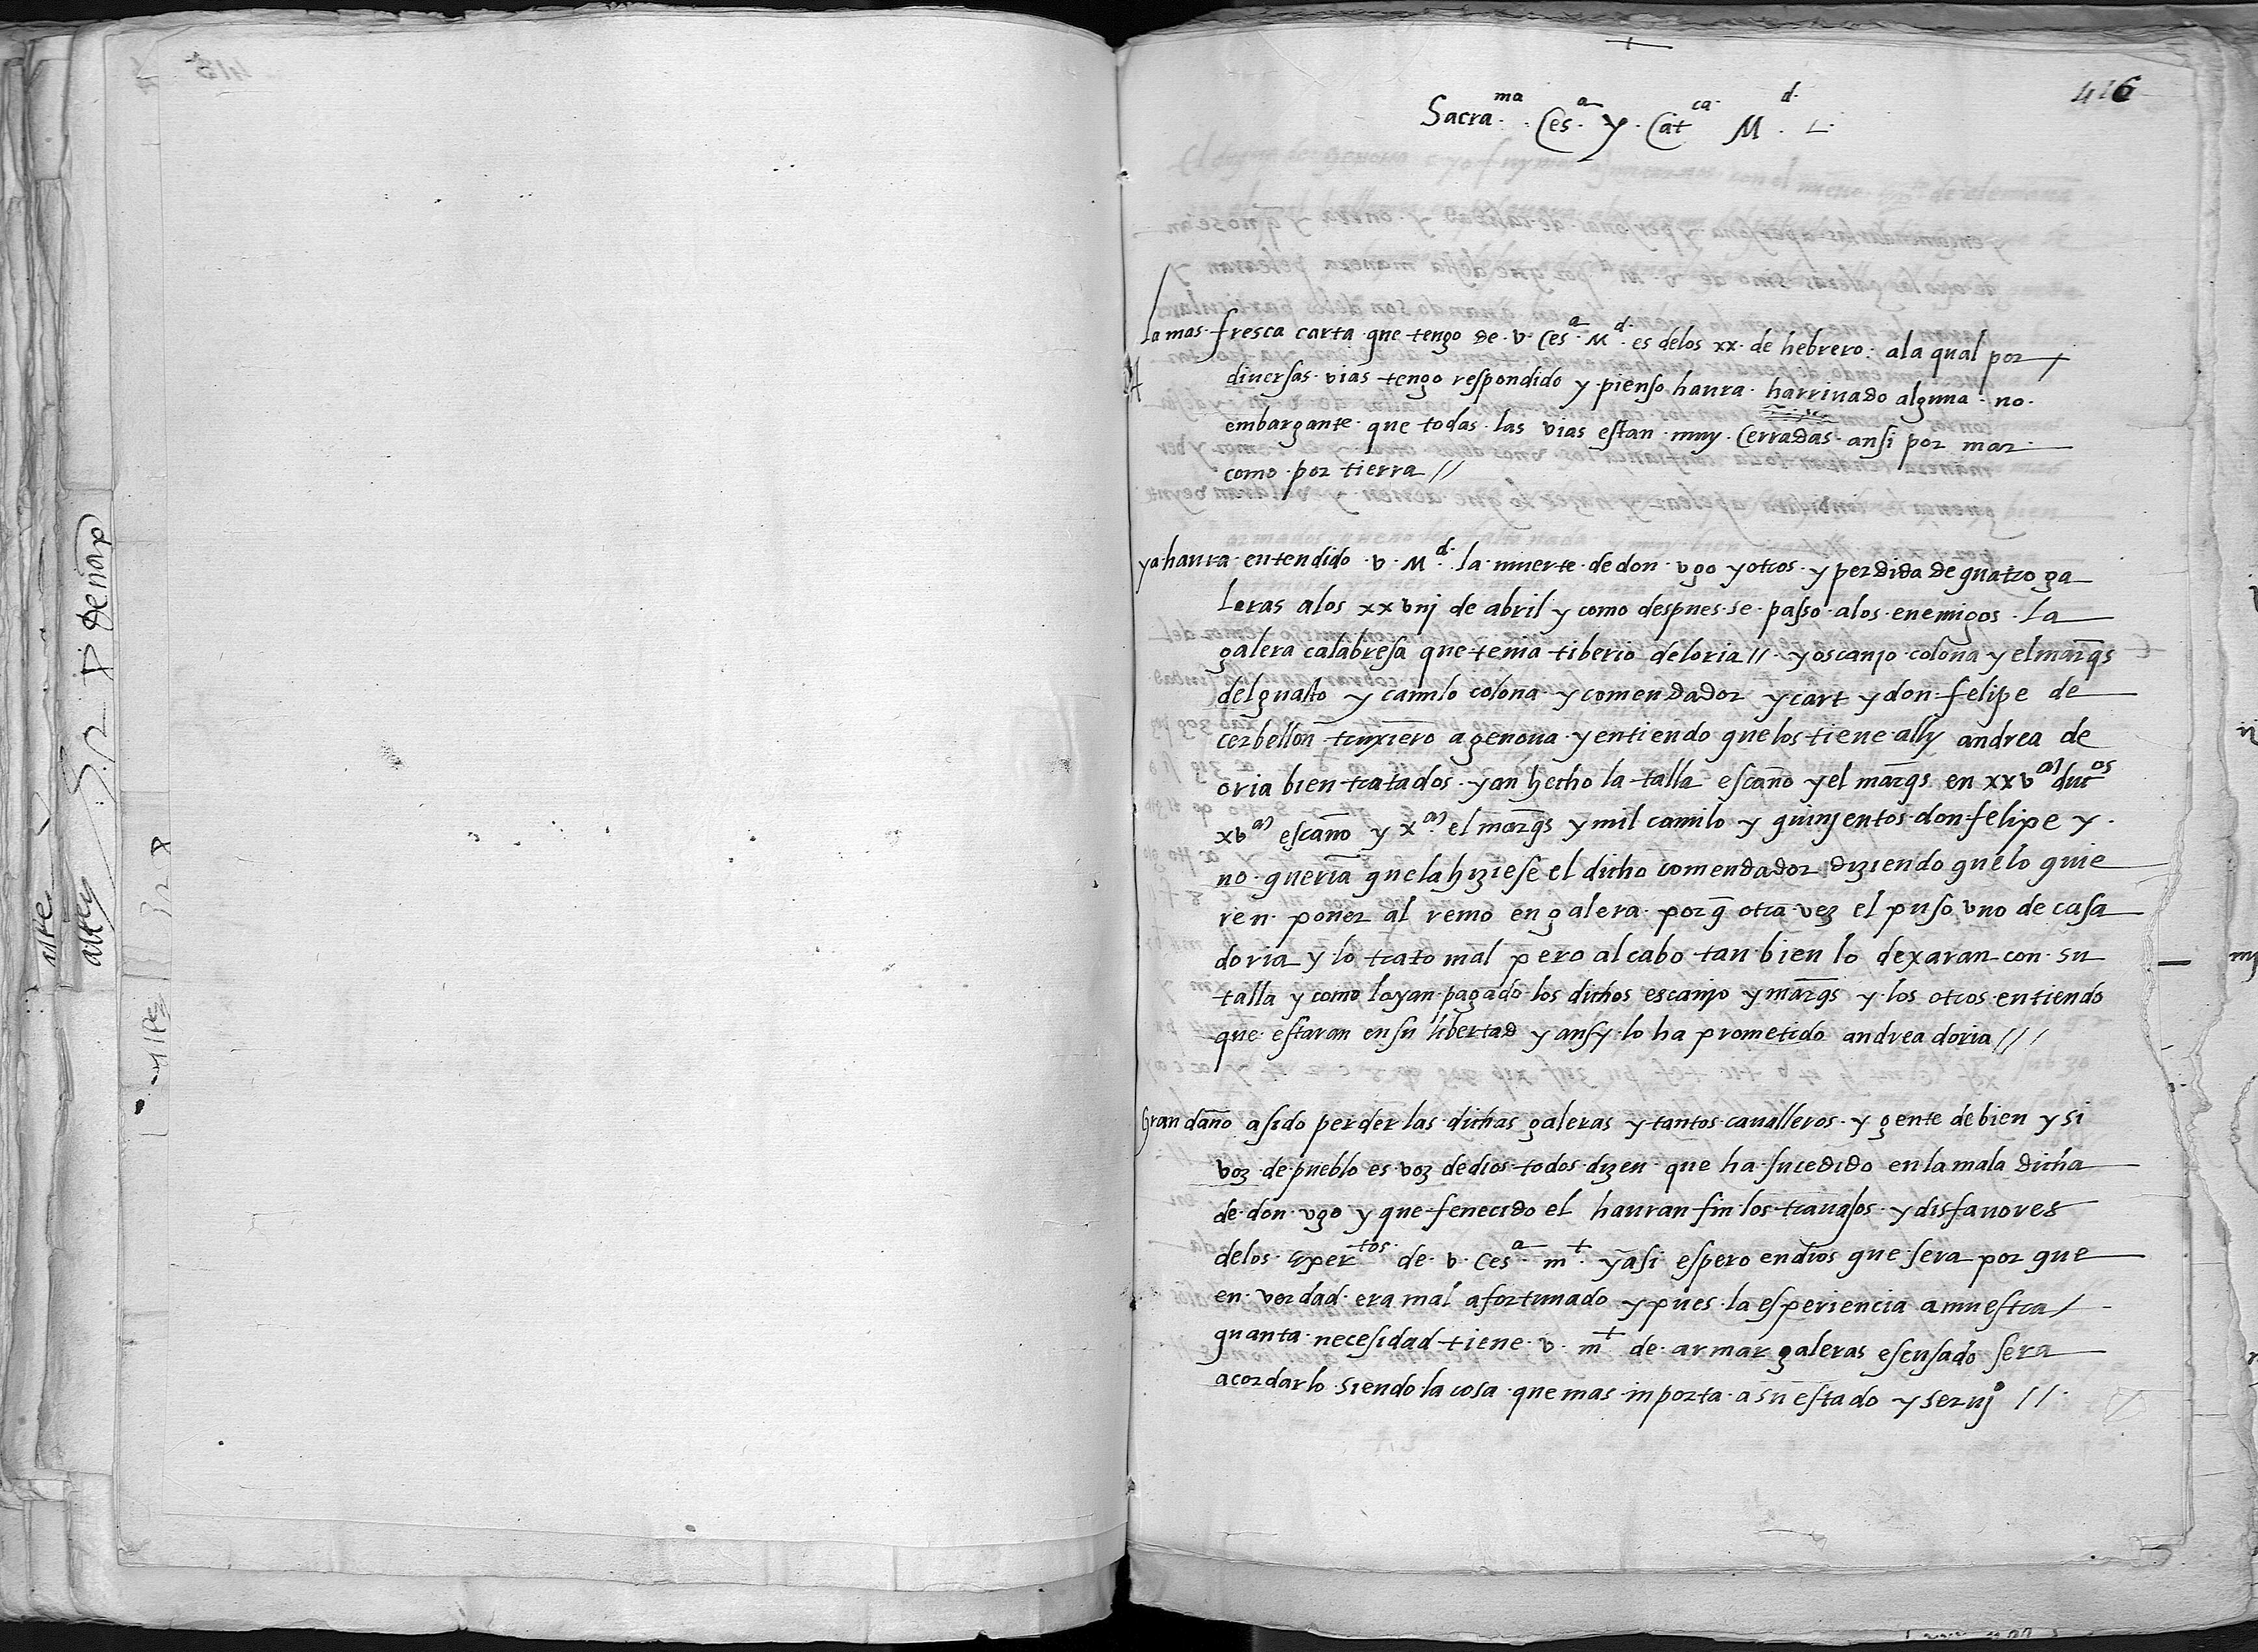 416
Sacra.ma Ces.a y. Cat.ca M.d L.
La mas fresca carta que tengo de v. Ces.a M.d es delos xx. de hebrero: ala qual por
diuersas vias tengo respondido y pienso haura harriuado alguna no
embargante que todas las vias estan muy Cerradas ansi por mar
como por tierra //
ya haura entendido v. M.d la muerte de don vgo y otros y perdida de quatro ga
leras alos xxviij de abril y como despues se passo alos enemigos la
galera calabresa que tenia tiberio deloria // y oscanjo colona y el marqs
del guasto y camilo colona y comendador ycart y don felipe de
cerbellon truxiero a genoua y entiendo que los tiene ally andrea de
oria bien tratados y an hecho la talla escano y el marqs en xxv duos
xv escano y x el marqs y mil camilo y quinjentos don felipe y
no queria que la hiziese el dicho comendador diziendo que lo quie
ren poner al remo en galera porq otra vez el puso vno de casa
doria y lo trato mal pero al cabo tan bien lo dexaran con su
talla y como layan pagado los dichos escanjo y marqs y los otros entiendo
que estaran en su libertad y ansy lo ha prometido andrea doria ///
Gran dano a sido perder las dichas galeras y tantos caualleros y gente de bien y si
voz de pueblo es voz de dios todos dizen que ha sucedido en la mala dicha
de don vgo y que fenecido el hauran fin los trauajos y disfauores
delos expertos de v. Ces.a m.t y asi espero en dios que sera por que
en verdad era mal afortunado y pues la esperiencia amuestra /
quanta necesidad tiene v. m.t de armar galeras escusado sera
acordarlo siendo la cosa que mas inporta a su estado y serujo //